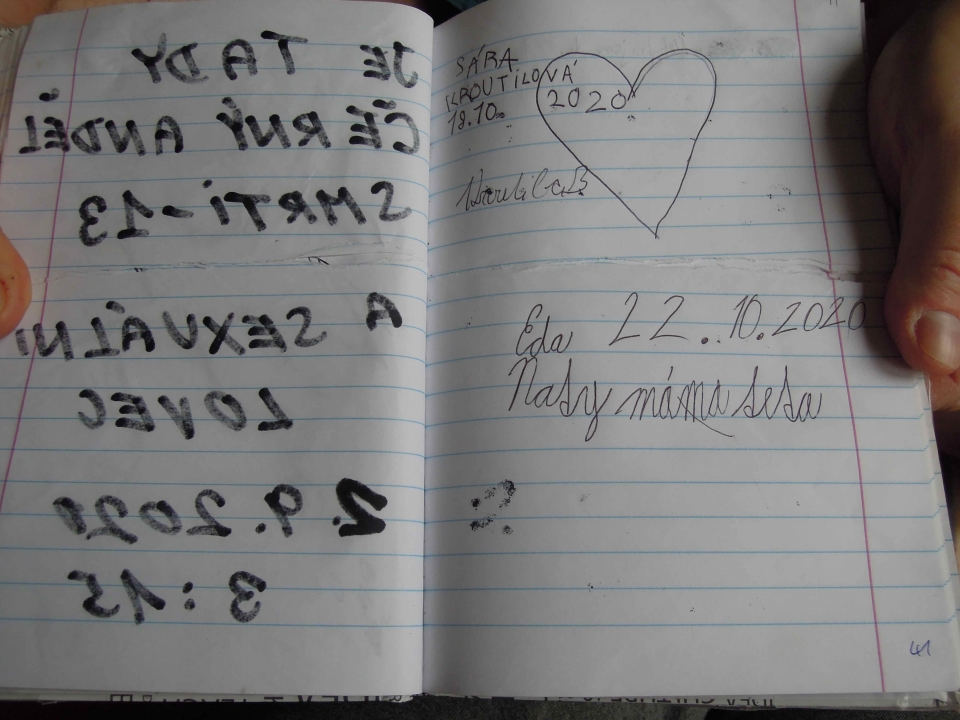 JE TADY
ČERNÝ ANDĚL
SMRTI-13
A SEXUÁLNI
LOVEC
2.9.2020
3:15
SÁRA
KROUTILOVÁ
18.10. 2020
Eda 22..10.2020
máma
41